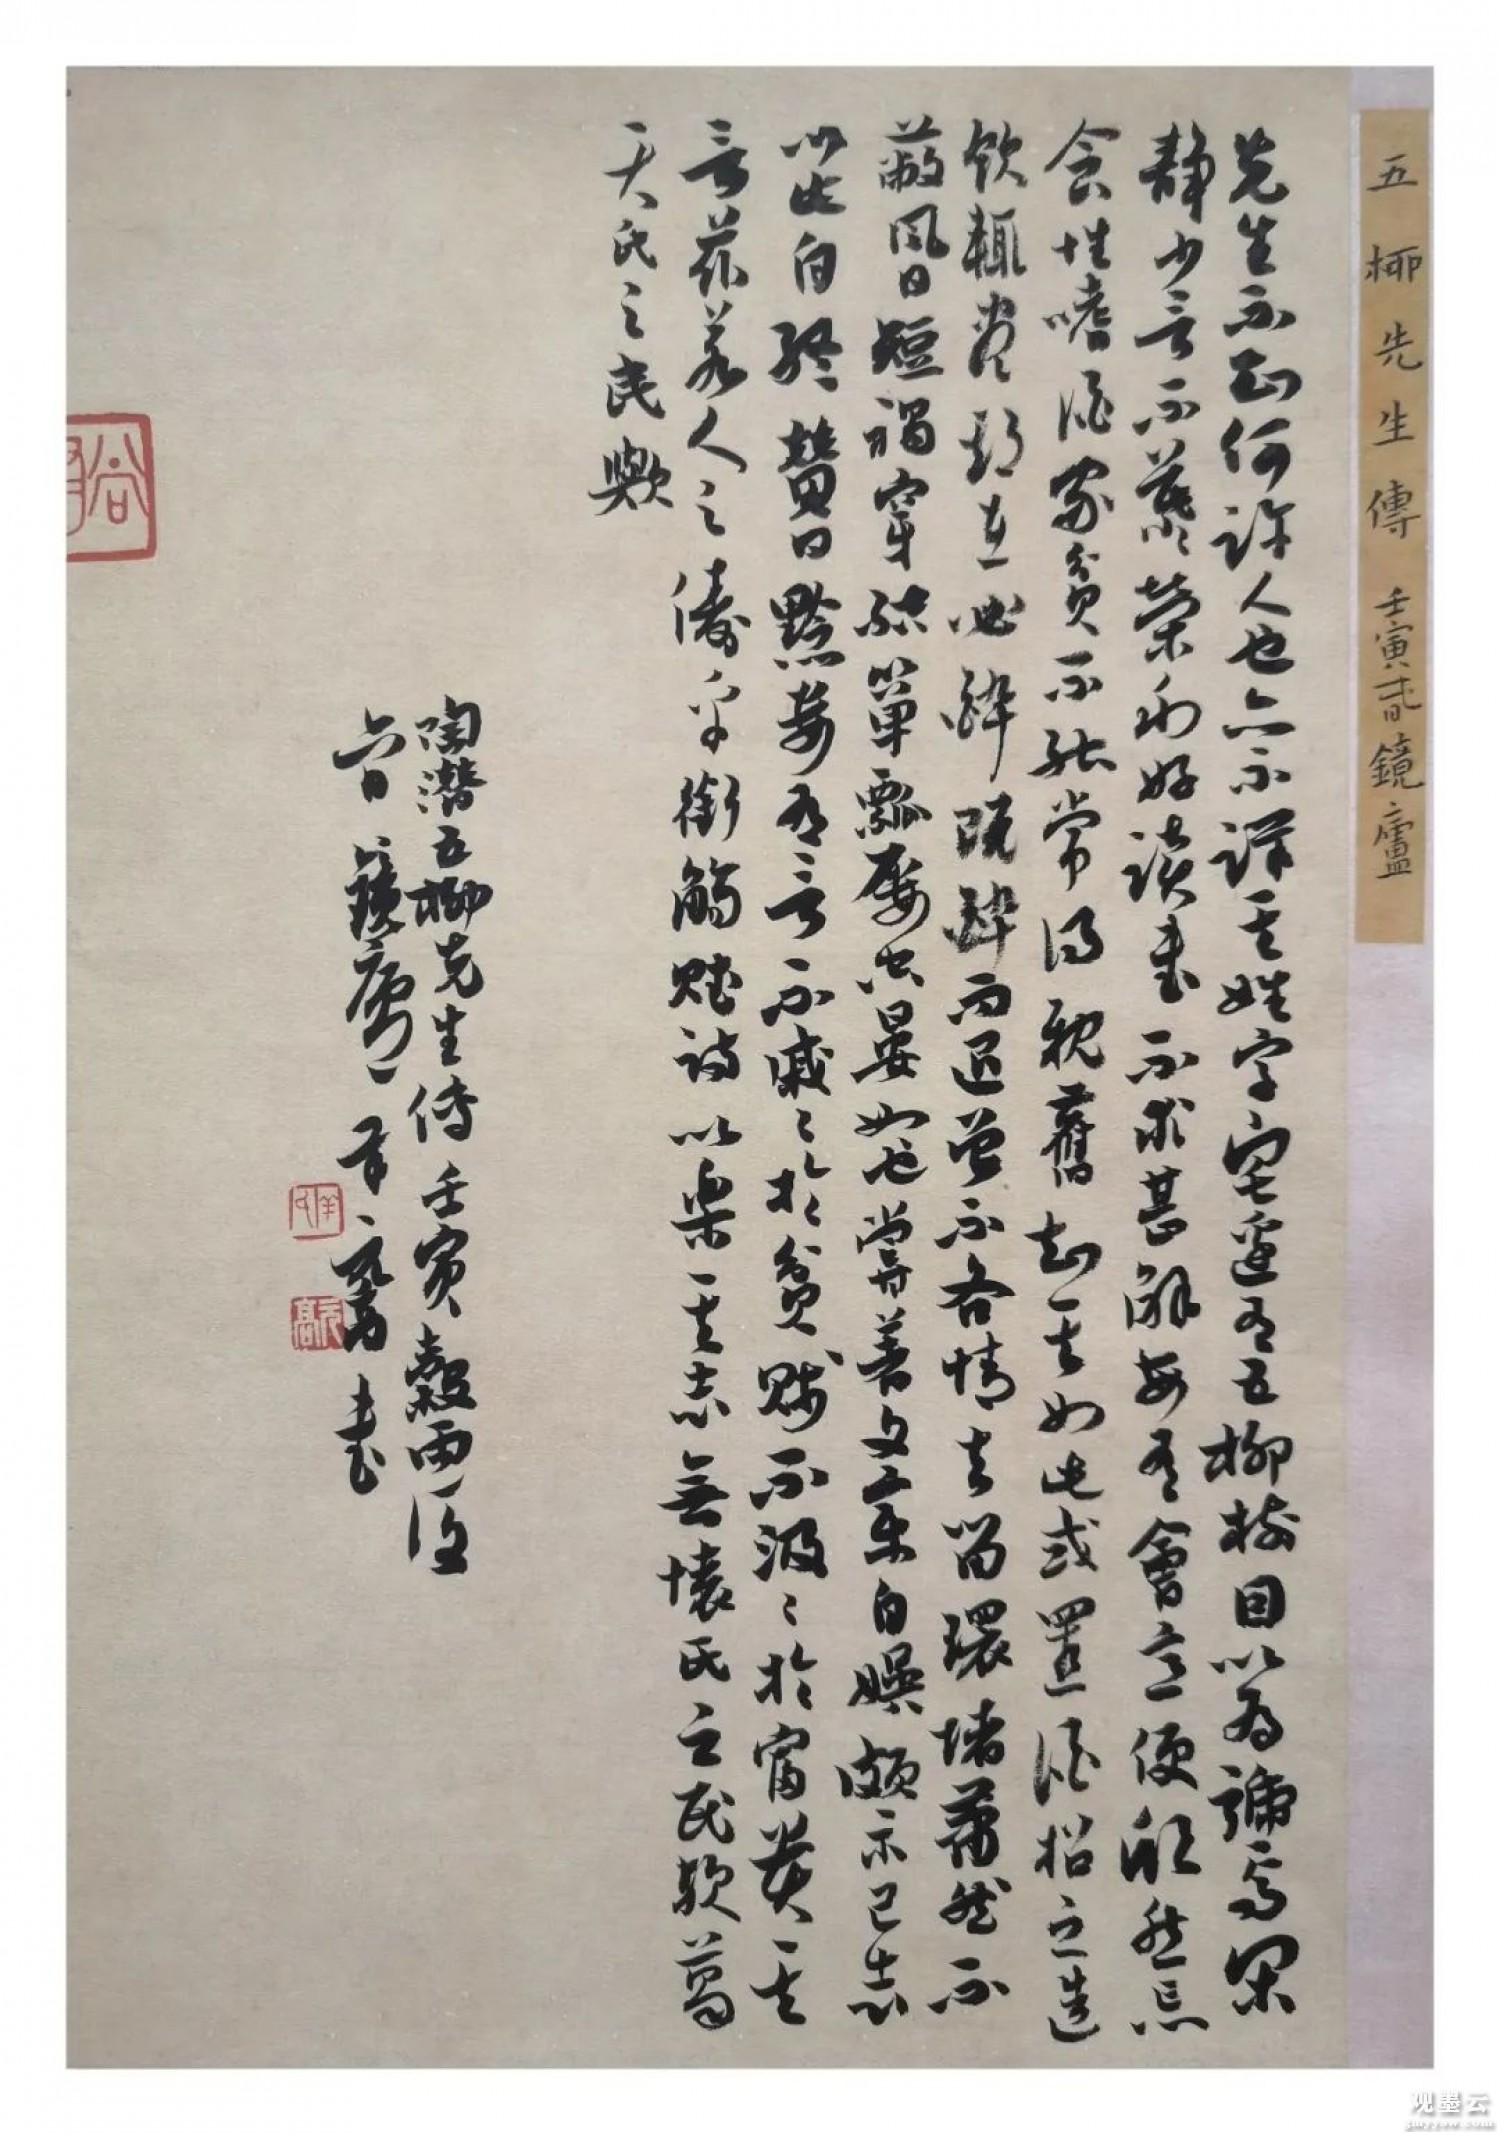 五柳先生傳 壬寅春 鏡廬
先生不知何許人也亦不詳其姓字宅邊有五柳樹因以為號焉閑
靜少言不慕榮利好讀書不求甚解每有會意便欣然忘
食性嗜酒家貧不能常得親舊知其如此或置酒招之造
飲輒盡期在必醉既醉而退曾不吝情去留環堵蕭然不
蔽風日短褐穿結簞瓢屢空晏如也嘗著文章自娛頗示己志
以此自終贊曰黔婁有言不戚々於貧賤不汲々於富貴其
言茲若人之儔乎銜觴賦詩以樂其志無懷氏之民歟葛
天氏之民歟
陶潛五柳先生傳壬寅穀雨後
六日鏡廬辛元高書
元高
观墨云
gmyyow.com